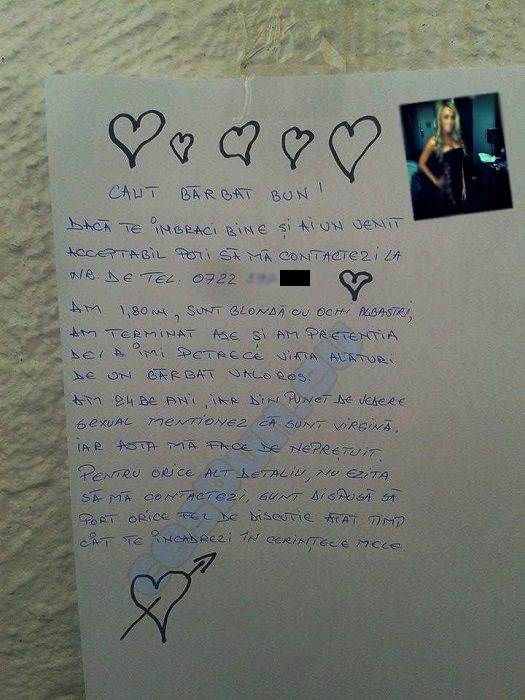 CAUT BĂRBAT BUN!
DACĂ TE ÎMBRACI BINE ȘI AI UN VENIT
ACCEPTABIL POȚI SĂ MĂ CONTACTEZI LA
NR. DE TEL. 0722
AM 1,80m, SUNT BLONDĂ CU OCHI ALBAȘTRI,
AM TERMINAT ASE ȘI AM PRETENȚIA
DE A ÎMI PETRECE VIAȚA ALĂTURI
DE UN BĂRBAT VALOROS.
AM 24 DE ANI, IAR DIN PUNCT DE VEDERE
SEXUAL MENȚIONEZ CĂ SUNT VIRGINĂ,
IAR ASTA MĂ FACE DE NEPREȚUIT.
PENTRU ORICE ALT DETALIU, NU EZITA
SĂ MĂ CONTACTEZI, SUNT DISPUSĂ SĂ
PORT ORICE FEL DE DISCUȚIE ATÂT TIMP
CÂT TE ÎNCADREZI ÎN CERINȚELE MELE